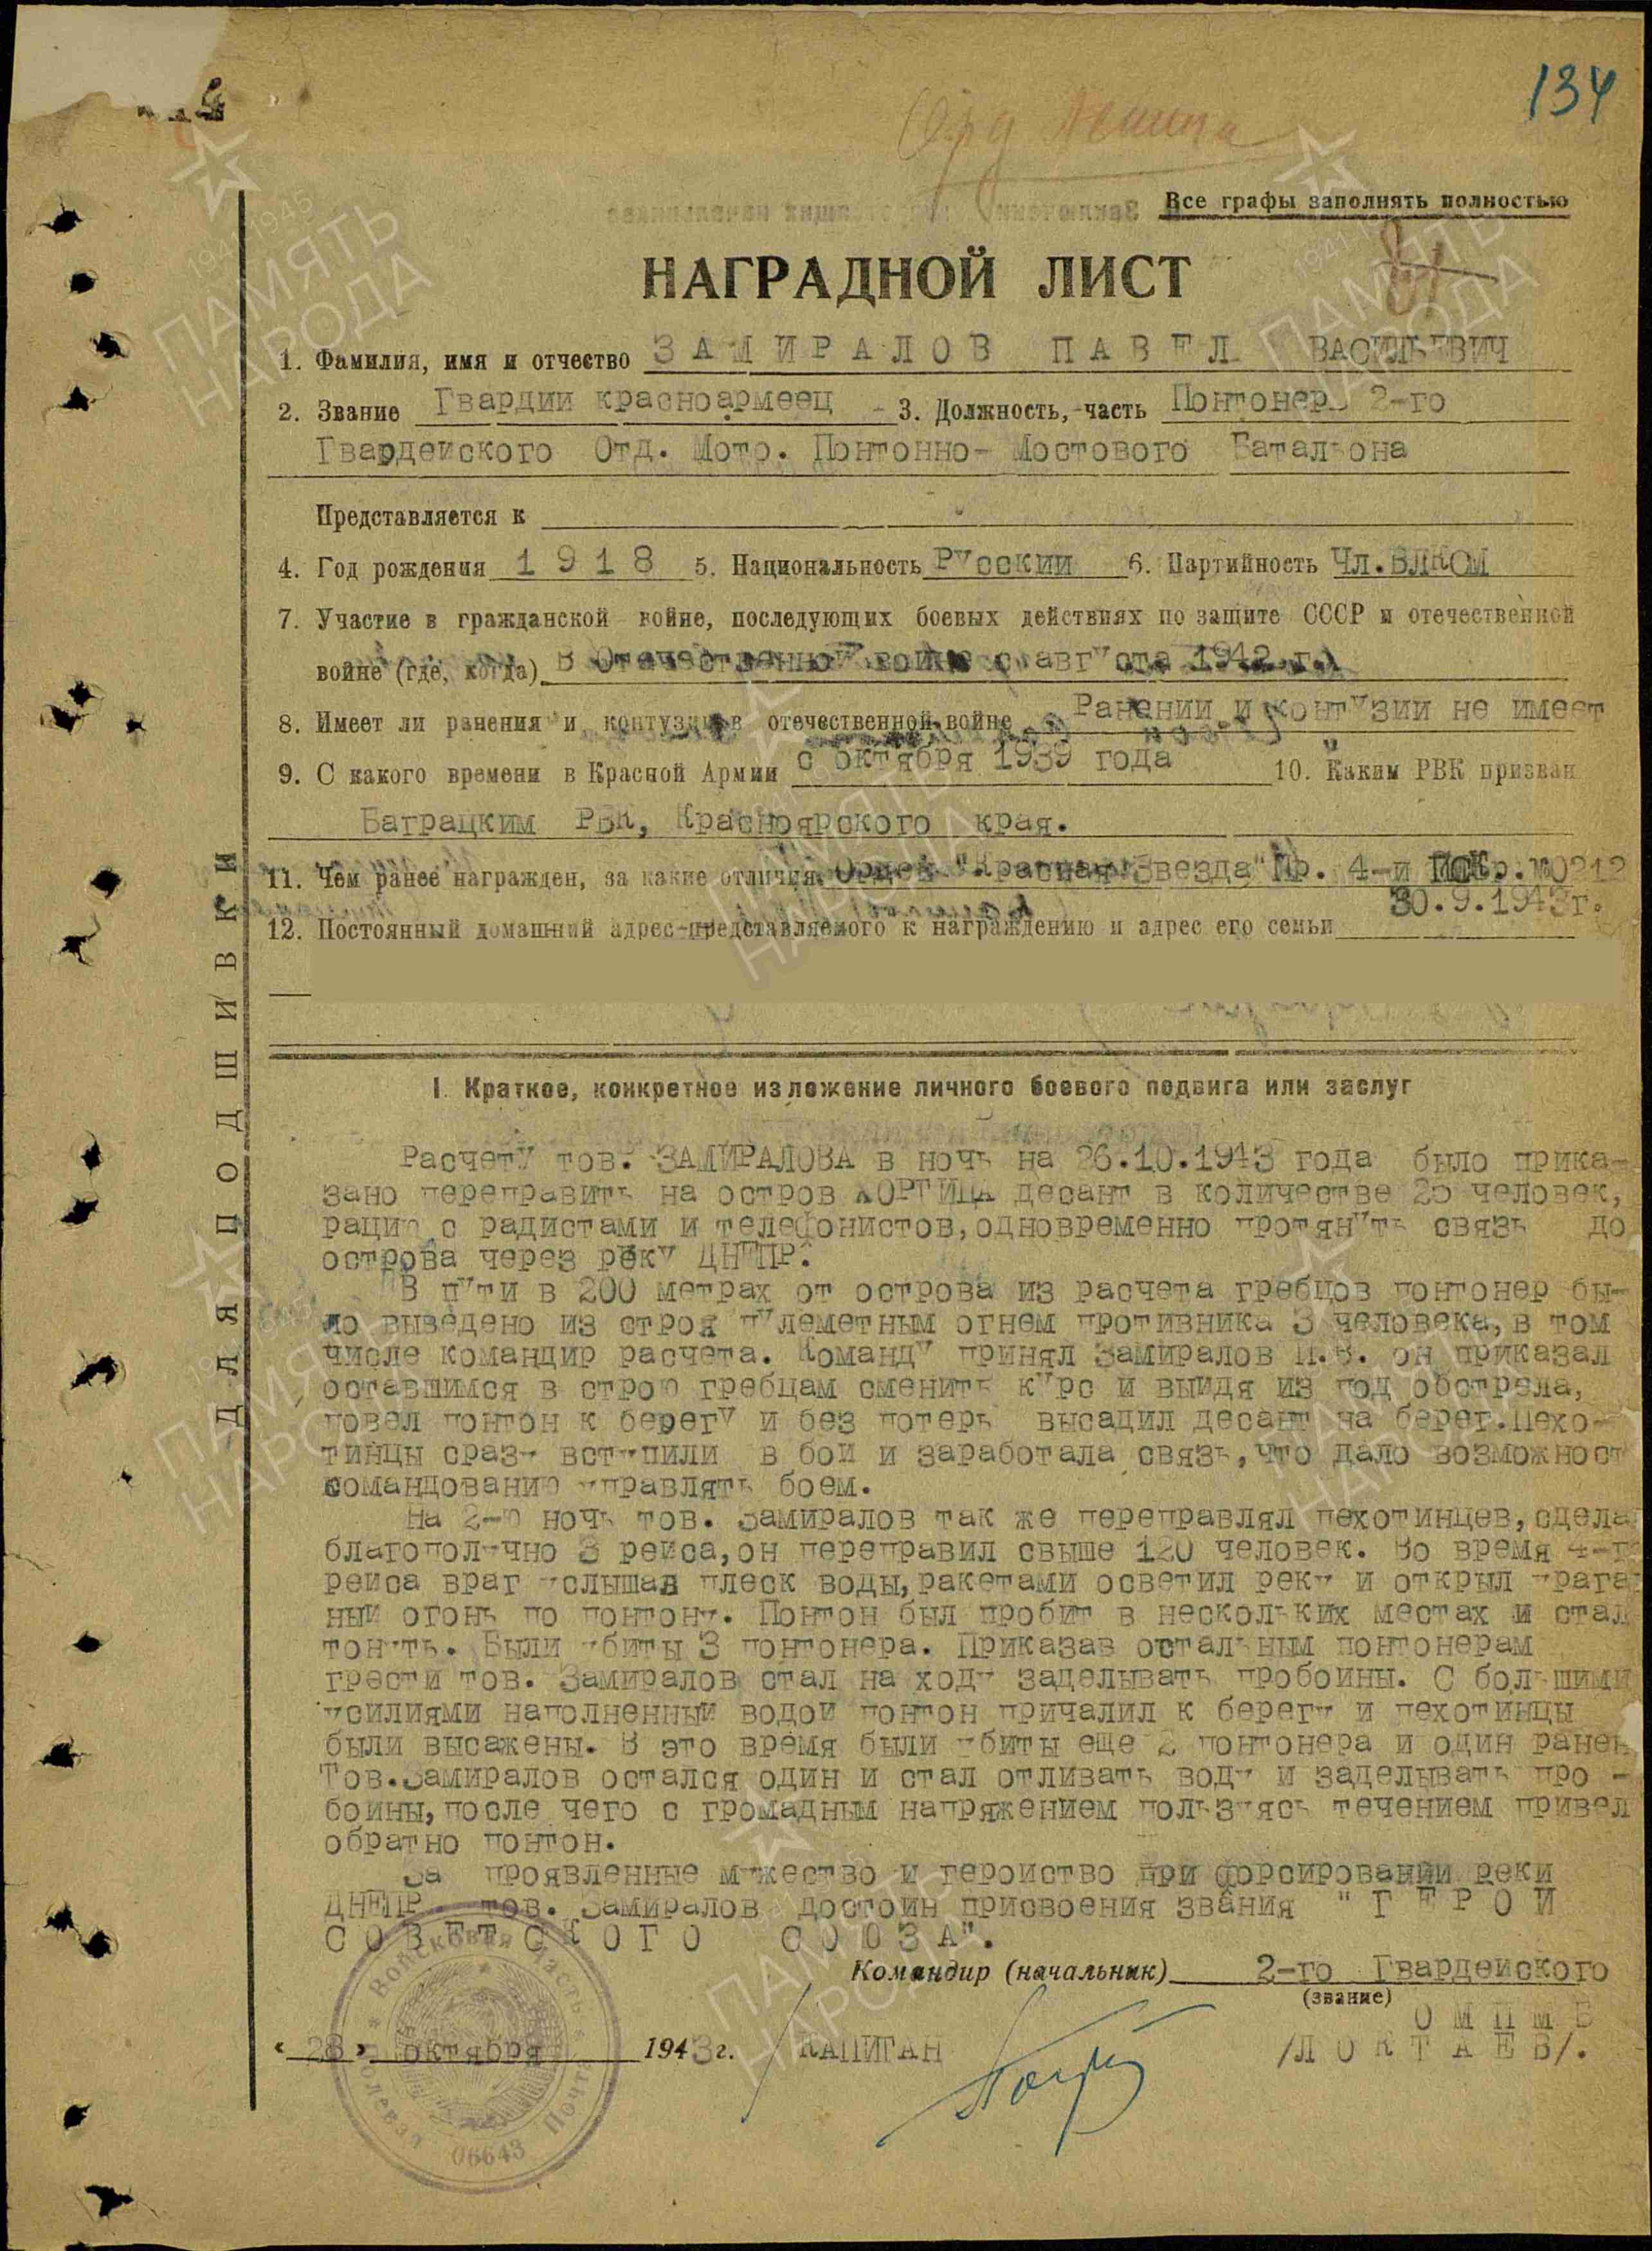 134
Орд Ленина
Все графы заполнять полностью
НАГРАДНОЙ ЛИСТ
1. Фамилия, имя и отчество ЗАМИРАЛОВ ПАВЕЛ ВАСИЛЬЕВИЧ
2. Звание Гвардии красноармеец 3. Должность, часть Понтонер 2-го
Гвардейского Отд. Мото. Понтонно- Мостового Батальона
Представляется к
4. Год рождения 1918 5. Национальность Русский 6. Партийность Чл.ВЛКСМ
7. Участие в гражданской войне, последующих боевых действиях по защите СССР и отечественной
войне (где, когда) В Отечественной войне с августа 1942 г.
8. Имеет ли ранения и контузии в отечественной войне Ранений и контузий не имеет
9. С какого времени в Красной Армии с октября 1939 года 10. Каким РВК призван
Баграцким РВК, Красноярского края.
11. Чем ранее награжден, за какие отличия Орден "Красная Звезда" Пр. 4-й №0212
30.9.1943г.
12. Постоянный домашний адрес представляемого к награждению и адрес его семьи
ДЛЯ ПОДШИВКИ
I. Краткое, конкретное изложение личного боевого подвига или заслуг
Расчету тов. ЗАМИРАЛОВА в ночь на 26.10.1943 года было прика-
зано переправить на остров ХОРТИЦА десант в количестве 25 человек,
рацию с радистами и телефонистов, одновременно протянуть связь до
острова через реку ДНЕПР.
В пути в 200 метрах от острова из расчета гребцов понтонер бы-
ло выведено из строя пулеметным огнем противника 3 человека, в том
числе командир расчета. Команду принял Замиралов П.В. он приказал
оставшимся в строю гребцам сменить курс и выйдя из под обстрела,
повел понтон к берегу и без потерь высадил десант на берег. Пехо-
тинцы сразу вступили в бой и заработала связь, что дало возможност
командованию управлять боем.
На 2-ю ночь тов. Замиралов так же переправлял пехотинцев, сдела
благополучно 3 рейса, он переправил свыше 120 человек. Во время 4-г
рейса враг услышав плеск воды, ракетами осветил реку и открыл урага
ный огонь по понтону. Понтон был пробит в нескольких местах и стал
тонуть. Были убиты 3 понтонера. Приказав остальным понтонерам
грести тов. Замиралов стал на ходу заделывать пробоины. С большими
усилиями наполненный водой понтон причалил к берегу и пехотинцы
были высажены. В это время были убиты еще 2 понтонера и один ранен
Тов. Замиралов остался один и стал отливать воду и заделывать про -
боины, после чего с громадным напряжением пользуясь течением привел
обратно понтон.
За проявленные мужество и геройство при форсировании реки
ДНЕПР тов. Замиралов достоин присвоения звания "ГЕРОЙ
СОВЕТСКОГО СОЮЗА".
Командир (начальник) 2-го Гвардейского
(звание)
ОМПМБ
«28» октября 1943 г. КАПИТАН /ЛОКТАЕВ/.
Войсковая Часть Полевая Почта 06643
ПАМЯТЬ НАРОДА
1941-1945